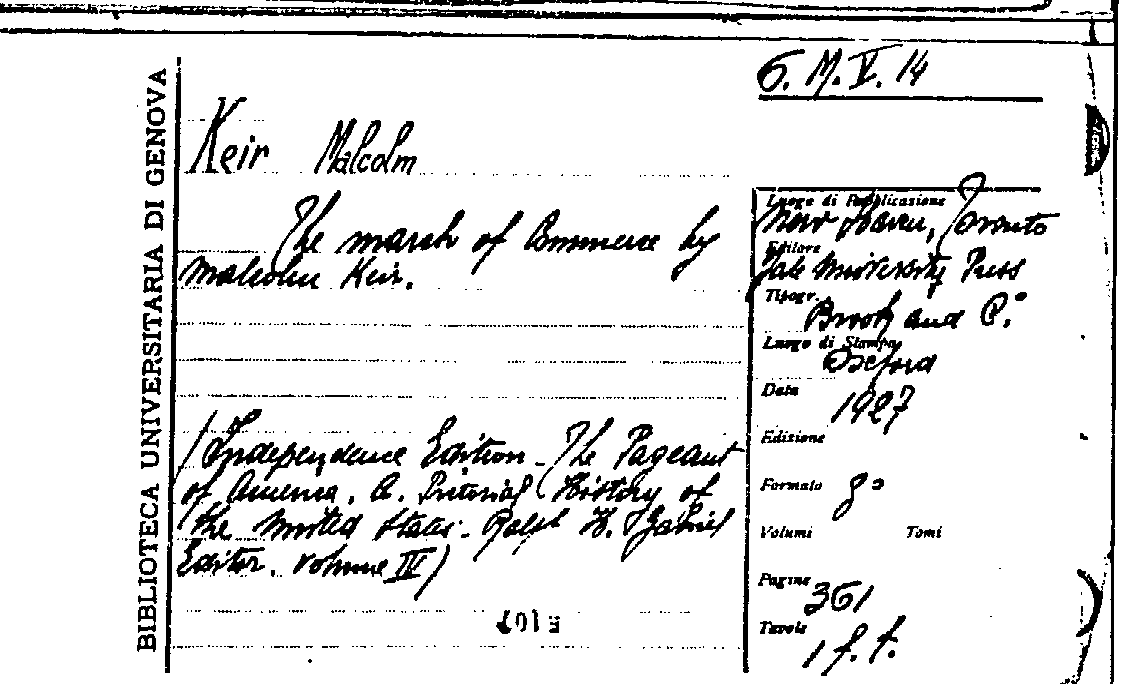 BIBLIOTECA UNIVERSITARIA DI GENOVA
6. M. V. 14
Keir Malcolm
The march of Commerce by
Malcolm Keir.
(Independence Edition - The Pageant
of America. A. Pictorial History of
the United States. Ralph H. Gabriel
Editor. Volume IV)
Luogo di Pubblicazione
New Haven, Toronto
Editore
Yale University Press
Tipogr.
and C.°
Luogo di Stampa
Oxford
Data
1927
Edizione
Formato 8°
Volumi Tomi
Pagine 361
Tavole 1 f. t.